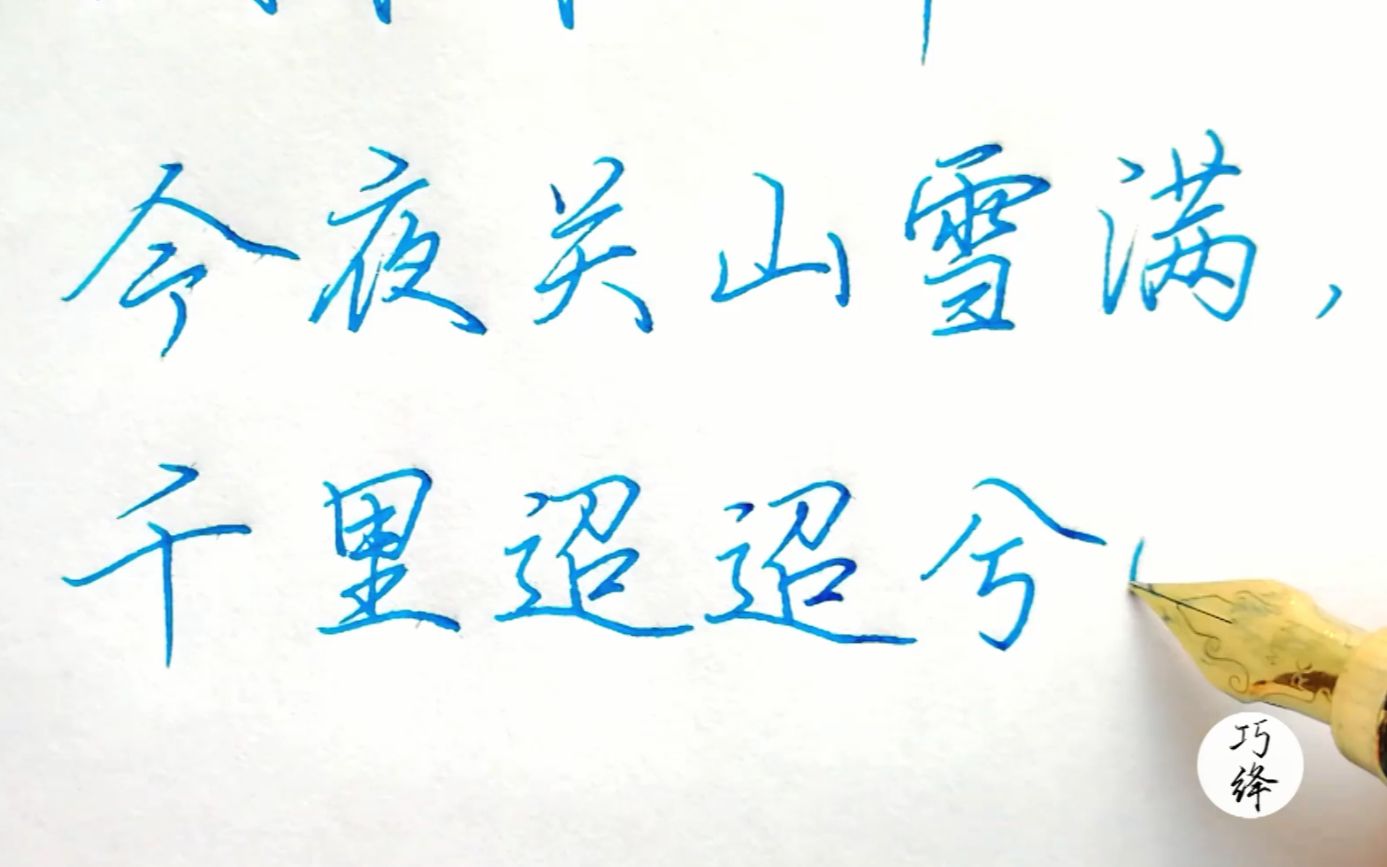 今夜关山雪满，
千里迢迢兮
巧
绛